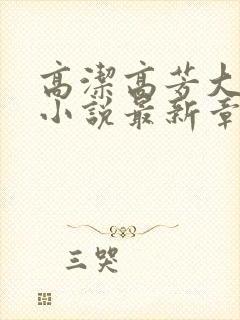 高潔高芳大
小說最新章
三哭